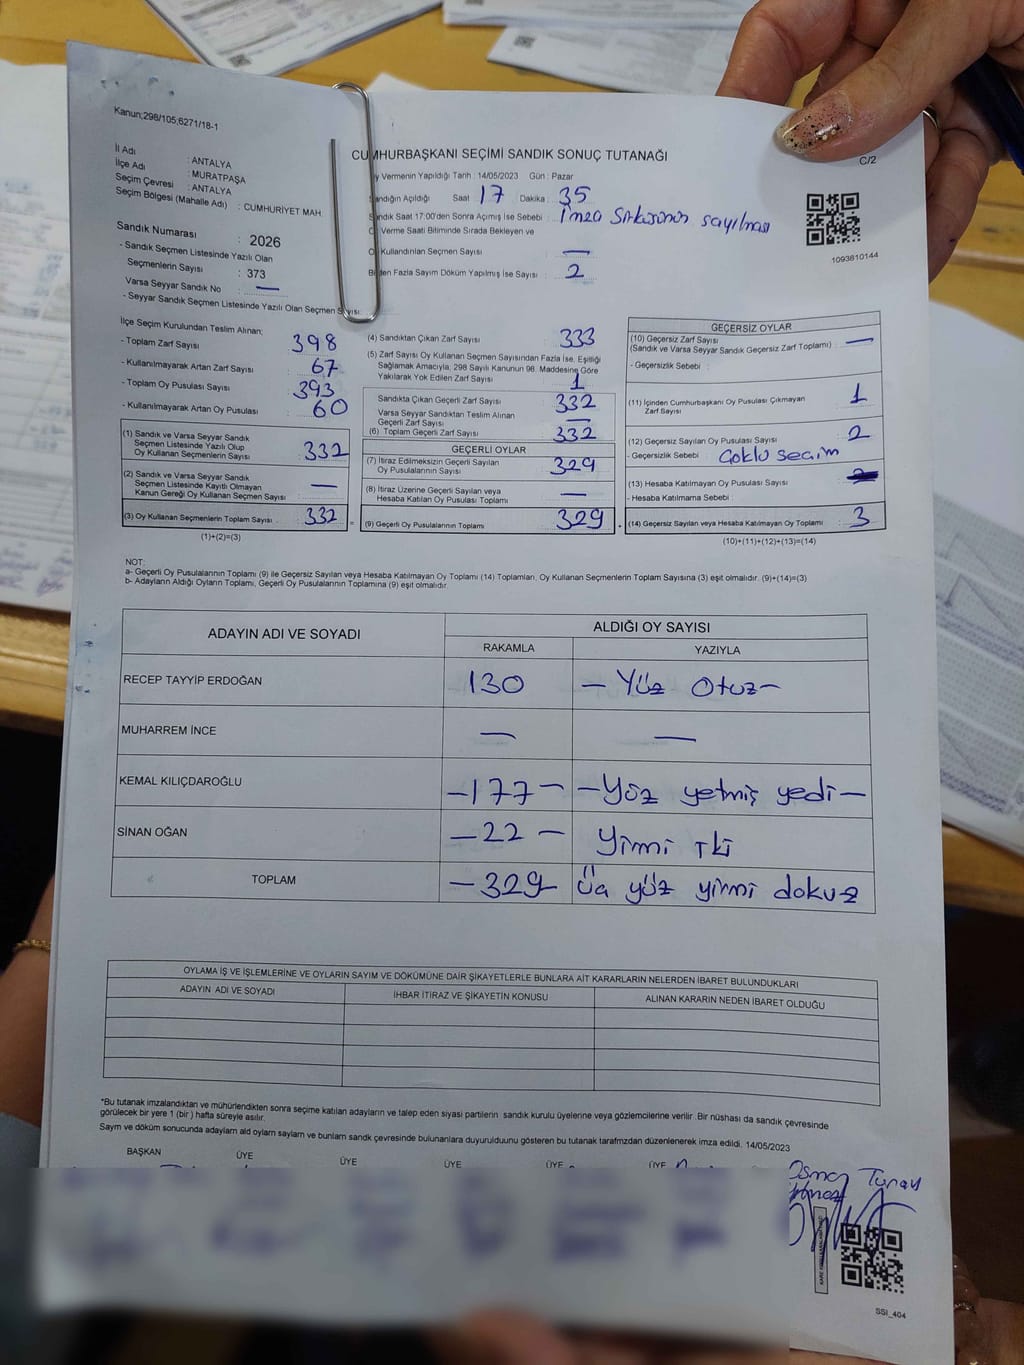 Kanun;298/105;6271/18-1
İl Adı : ANTALYA
İlçe Adı : MURATPAŞA
Seçim Çevresi : ANTALYA
Seçim Bölgesi (Mahalle Adı) : CUMHURİYET MAH
Sandık Numarası : 2026
- Sandık Seçmen Listesinde Yazılı Olan
Seçmenlerin Sayısı : 373
Varsa Seyyar Sandık No : —
- Seyyar Sandık Seçmen Listesinde Yazılı Olan Seçmen Sayısı:
CUMHURBAŞKANI SEÇİMİ SANDIK SONUÇ TUTANAĞI
C/2
y Vermenin Yapıldığı Tarih : 14/05/2023 Gün : Pazar
andığın Açıldığı Saat 17 Dakika : 35
andık Saat 17:00'den Sonra Açımış İse Sebebi : İmza Sirküsünün sayılması
Verme Saati Bitiminde Sırada Bekleyen ve
Kullandırılan Seçmen Sayısı : —
den Fazla Sayım Döküm Yapılmış İse Sayısı : 2
1093610144
İlçe Seçim Kurulundan Teslim Alınan;
- Toplam Zarf Sayısı : 398
- Kullanılmayarak Artan Zarf Sayısı : 67
- Toplam Oy Pusulası Sayısı : 393
- Kullanılmayarak Artan Oy Pusulası : 60
(1) Sandık ve Varsa Seyyar Sandık
Seçmen Listesinde Yazılı Olup
Oy Kullanan Seçmenlerin Sayısı : 332
(2) Sandık ve Varsa Seyyar Sandık
Seçmen Listesinde Kayıtlı Olmayan
Kanun Gereği Oy Kullanan Seçmen Sayısı : —
(3) Oy Kullanan Seçmenlerin Toplam Sayısı : 332 =
(1)+(2)=(3)
(4) Sandıktan Çıkan Zarf Sayısı : 333
(5) Zarf Sayısı Oy Kullanan Seçmen Sayısından Fazla İse, Eşitliği
Sağlamak Amacıyla; 298 Sayılı Kanunun 98. Maddesine Göre
Yakılarak Yok Edilen Zarf Sayısı : 1
Sandıkta Çıkan Geçerli Zarf Sayısı : 332
Varsa Seyyar Sandıktan Teslim Alınan
Geçerli Zarf Sayısı : —
(6) Toplam Geçerli Zarf Sayısı : 332
GEÇERLİ OYLAR
(7) İtiraz Edilmeksizin Geçerli Sayılan
Oy Pusulalarının Sayısı : 329
(8) İtiraz Üzerine Geçerli Sayılan veya
Hesaba Katılan Oy Pusulası Toplamı : —
(9) Geçerli Oy Pusulalarının Toplamı : 329
GEÇERSİZ OYLAR
(10) Geçersiz Zarf Sayısı
(Sandık ve Varsa Seyyar Sandık Geçersiz Zarf Toplamı) : —
- Geçersizlik Sebebi :
(11) İçinden Cumhurbaşkanı Oy Pusulası Çıkmayan
Zarf Sayısı : 1
(12) Geçersiz Sayılan Oy Pusulası Sayısı : 2
- Geçersizlik Sebebi : Çoklu seçim
(13) Hesaba Katılmayan Oy Pusulası Sayısı :
- Hesaba Katılmama Sebebi :
(14) Geçersiz Sayılan veya Hesaba Katılmayan Oy Toplamı : 3
(10)+(11)+(12)+(13)=(14)
NOT:
a- Geçerli Oy Pusulalarının Toplamı (9) ile Geçersiz Sayılan veya Hesaba Katılmayan Oy Toplamı (14) Toplamları, Oy Kullanan Seçmenlerin Toplam Sayısına (3) eşit olmalıdır. (9)+(14)=(3)
b- Adayların Aldığı Oyların Toplamı, Geçerli Oy Pusulalarının Toplamına (9) eşit olmalıdır.
ADAYIN ADI VE SOYADI ALDIĞI OY SAYISI
RAKAMLA YAZIYLA
RECEP TAYYİP ERDOĞAN 130 — Yüz Otuz —
MUHARREM İNCE — —
KEMAL KILIÇDAROĞLU — 177 — — Yüz yetmiş yedi —
SİNAN OĞAN — 22 — Yirmi iki
TOPLAM — 329 Üç yüz yirmi dokuz
OYLAMA İŞ VE İŞLEMLERİNE VE OYLARIN SAYIM VE DÖKÜMÜNE DAİR ŞİKAYETLERLE BUNLARA AİT KARARLARIN NELERDEN İBARET BULUNDUKLARI
ADAYIN ADI VE SOYADI İHBAR İTİRAZ VE ŞİKAYETİN KONUSU ALINAN KARARIN NEDEN İBARET OLDUĞU
*Bu tutanak imzalandıktan ve mühürlendikten sonra seçime katılan adayların ve talep eden siyasi partilerin sandık kurulu üyelerine veya gözlemcilerine verilir. Bir nüshası da sandık çevresinde
görülecek bir yere 1 (bir) hafta süreyle asılır.
Sayım ve döküm sonucunda adayların ald oyların sayların ve bunların sandk çevresinde bulunanlara duyurulduunu gösteren bu tutanak tarafmzdan düzenlenerek imza edildi. 14/05/2023
BAŞKAN ÜYE ÜYE ÜYE ÜYE ÜYE
Tunay
SSI_404